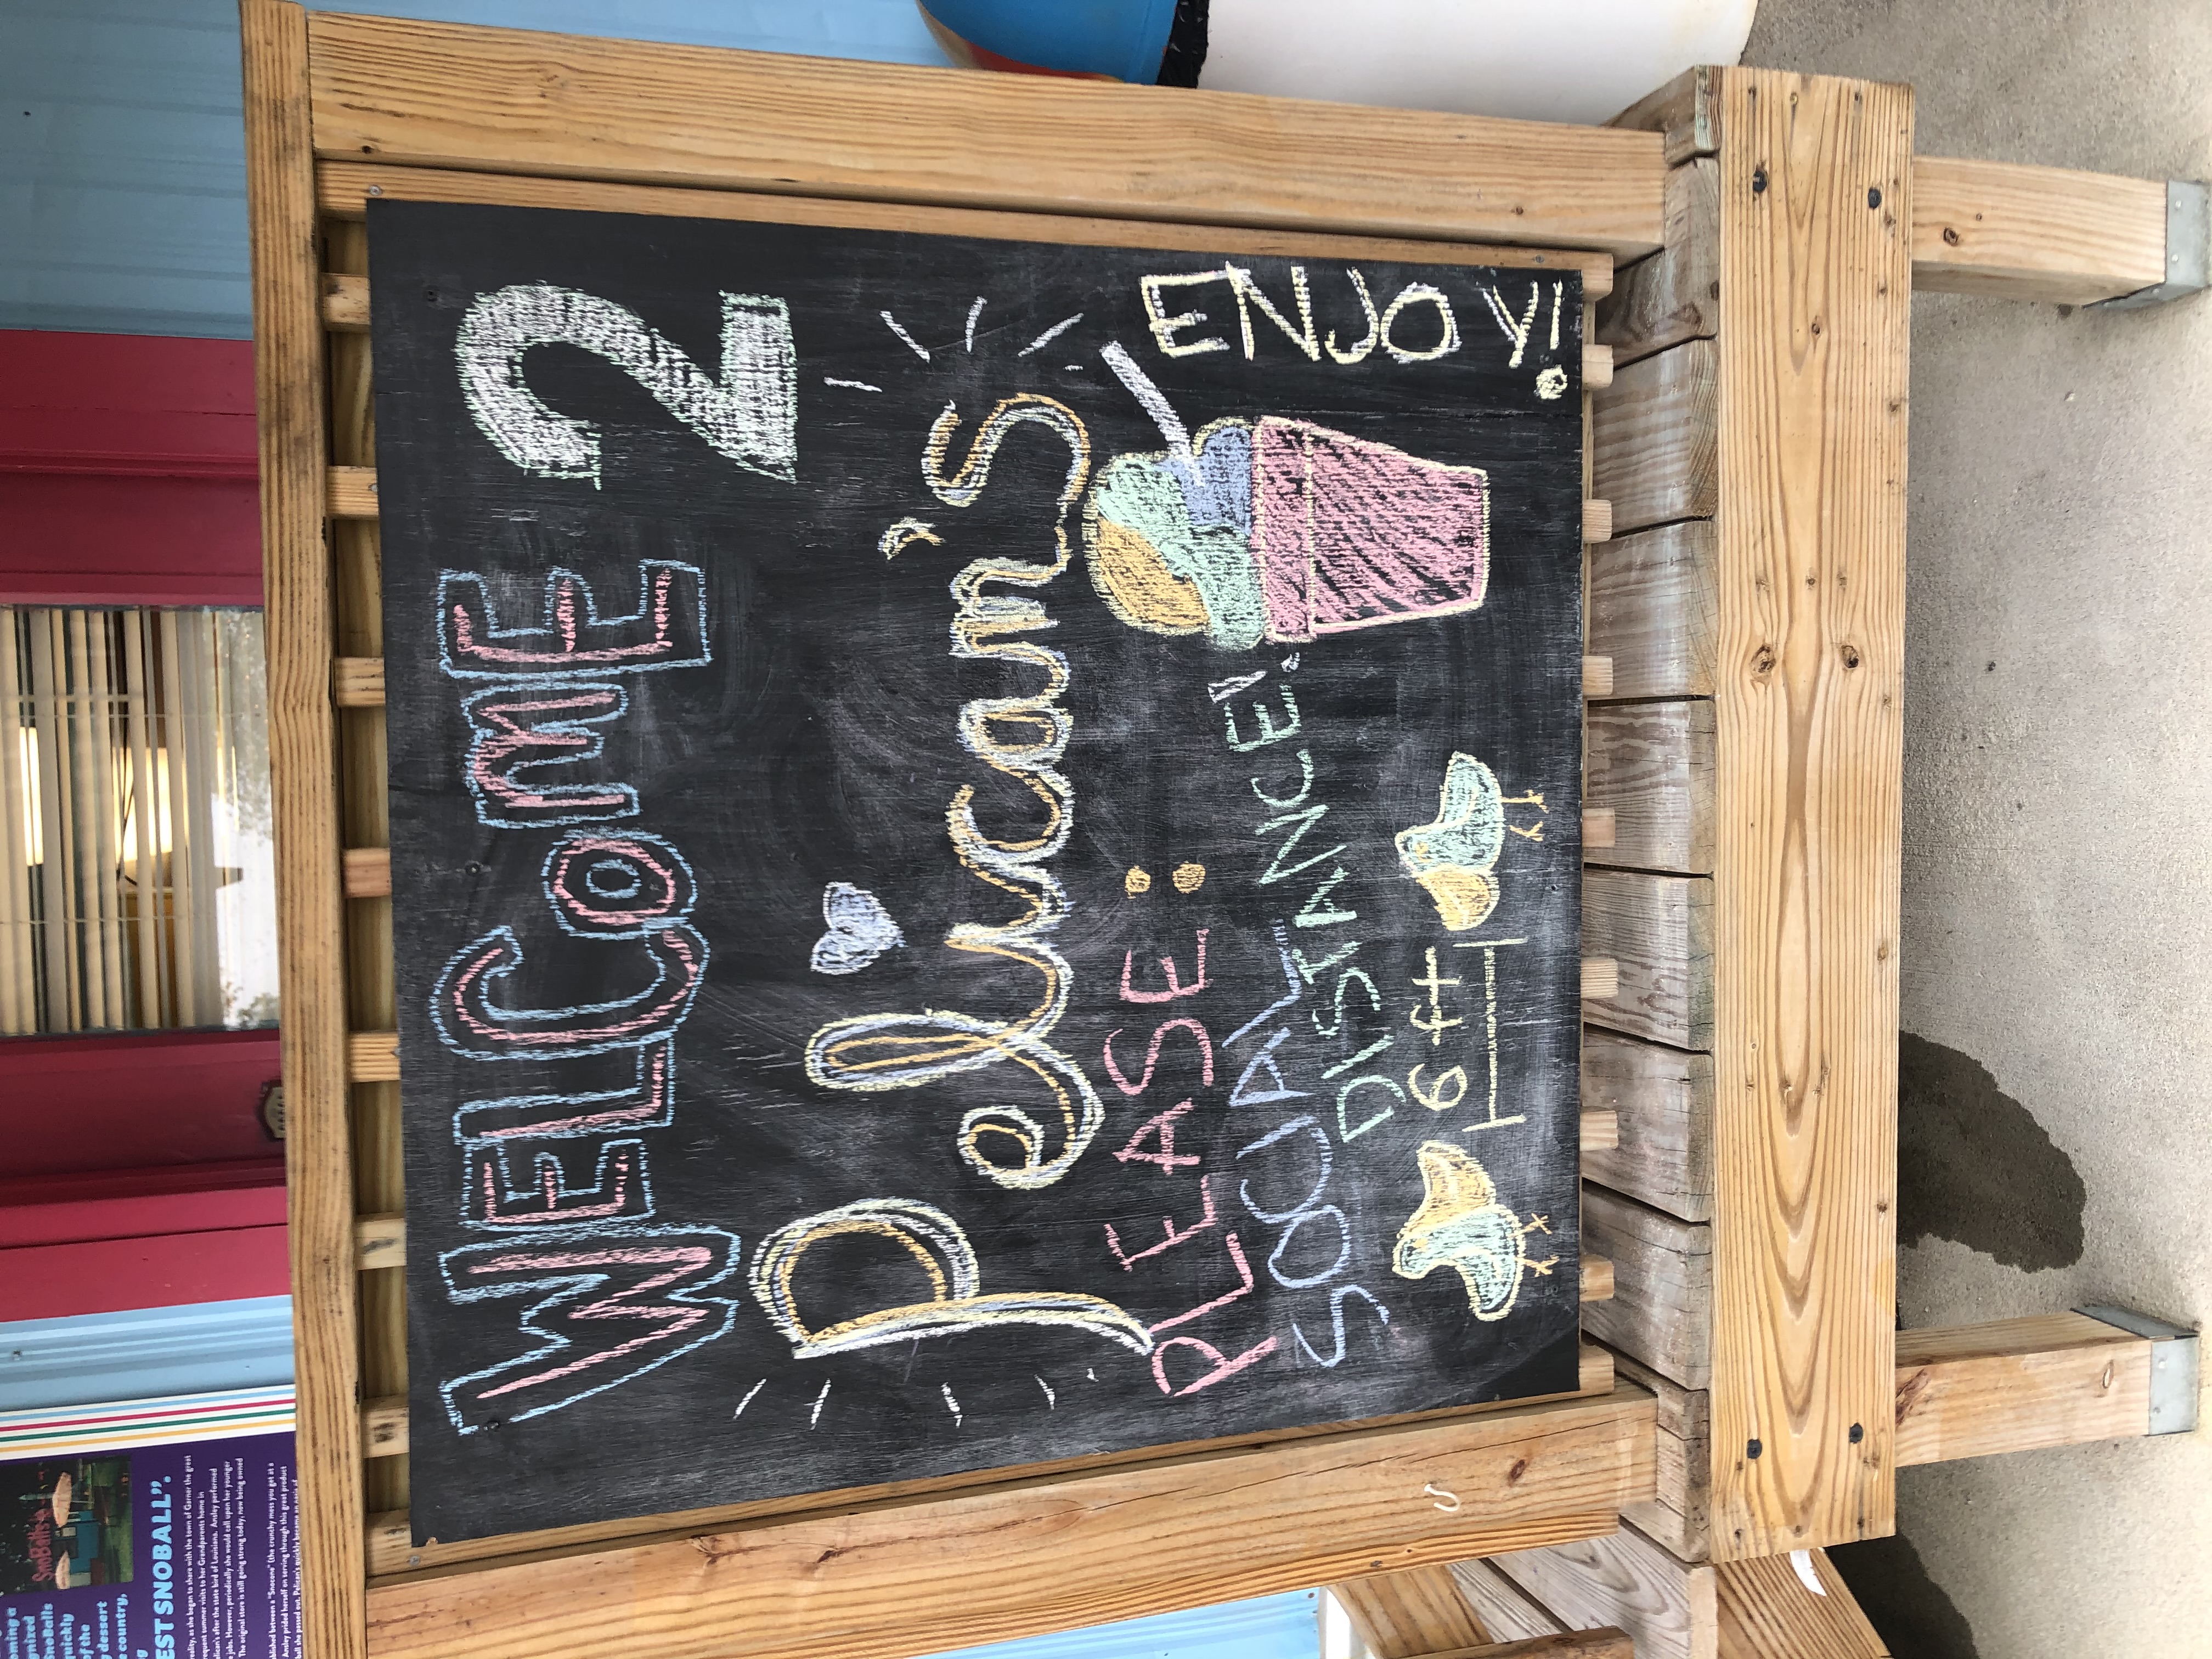 oming a
gnized
SnoBalls
quickly
of the
dessert
e country,
SnoBalls
EST SNOBALL".
reality, as she began to share with the town of Garner the great
requent summer visits to her Grandparents home in
elican's after the state bird of Louisiana. Ansley performed
e jobs. However, periodically she would call upon her younger
The original store is still going strong today, now being owned
ablished between a "Snocone" (the crunchy mess you get at a
Ansley prided herself on serving through this great product
ball she passed out. Pelican's quickly became an oasis of
WELCOME 2
Pelican's
PLEASE:
SOCIAL
DISTANCE!
6 ft
ENJOY!